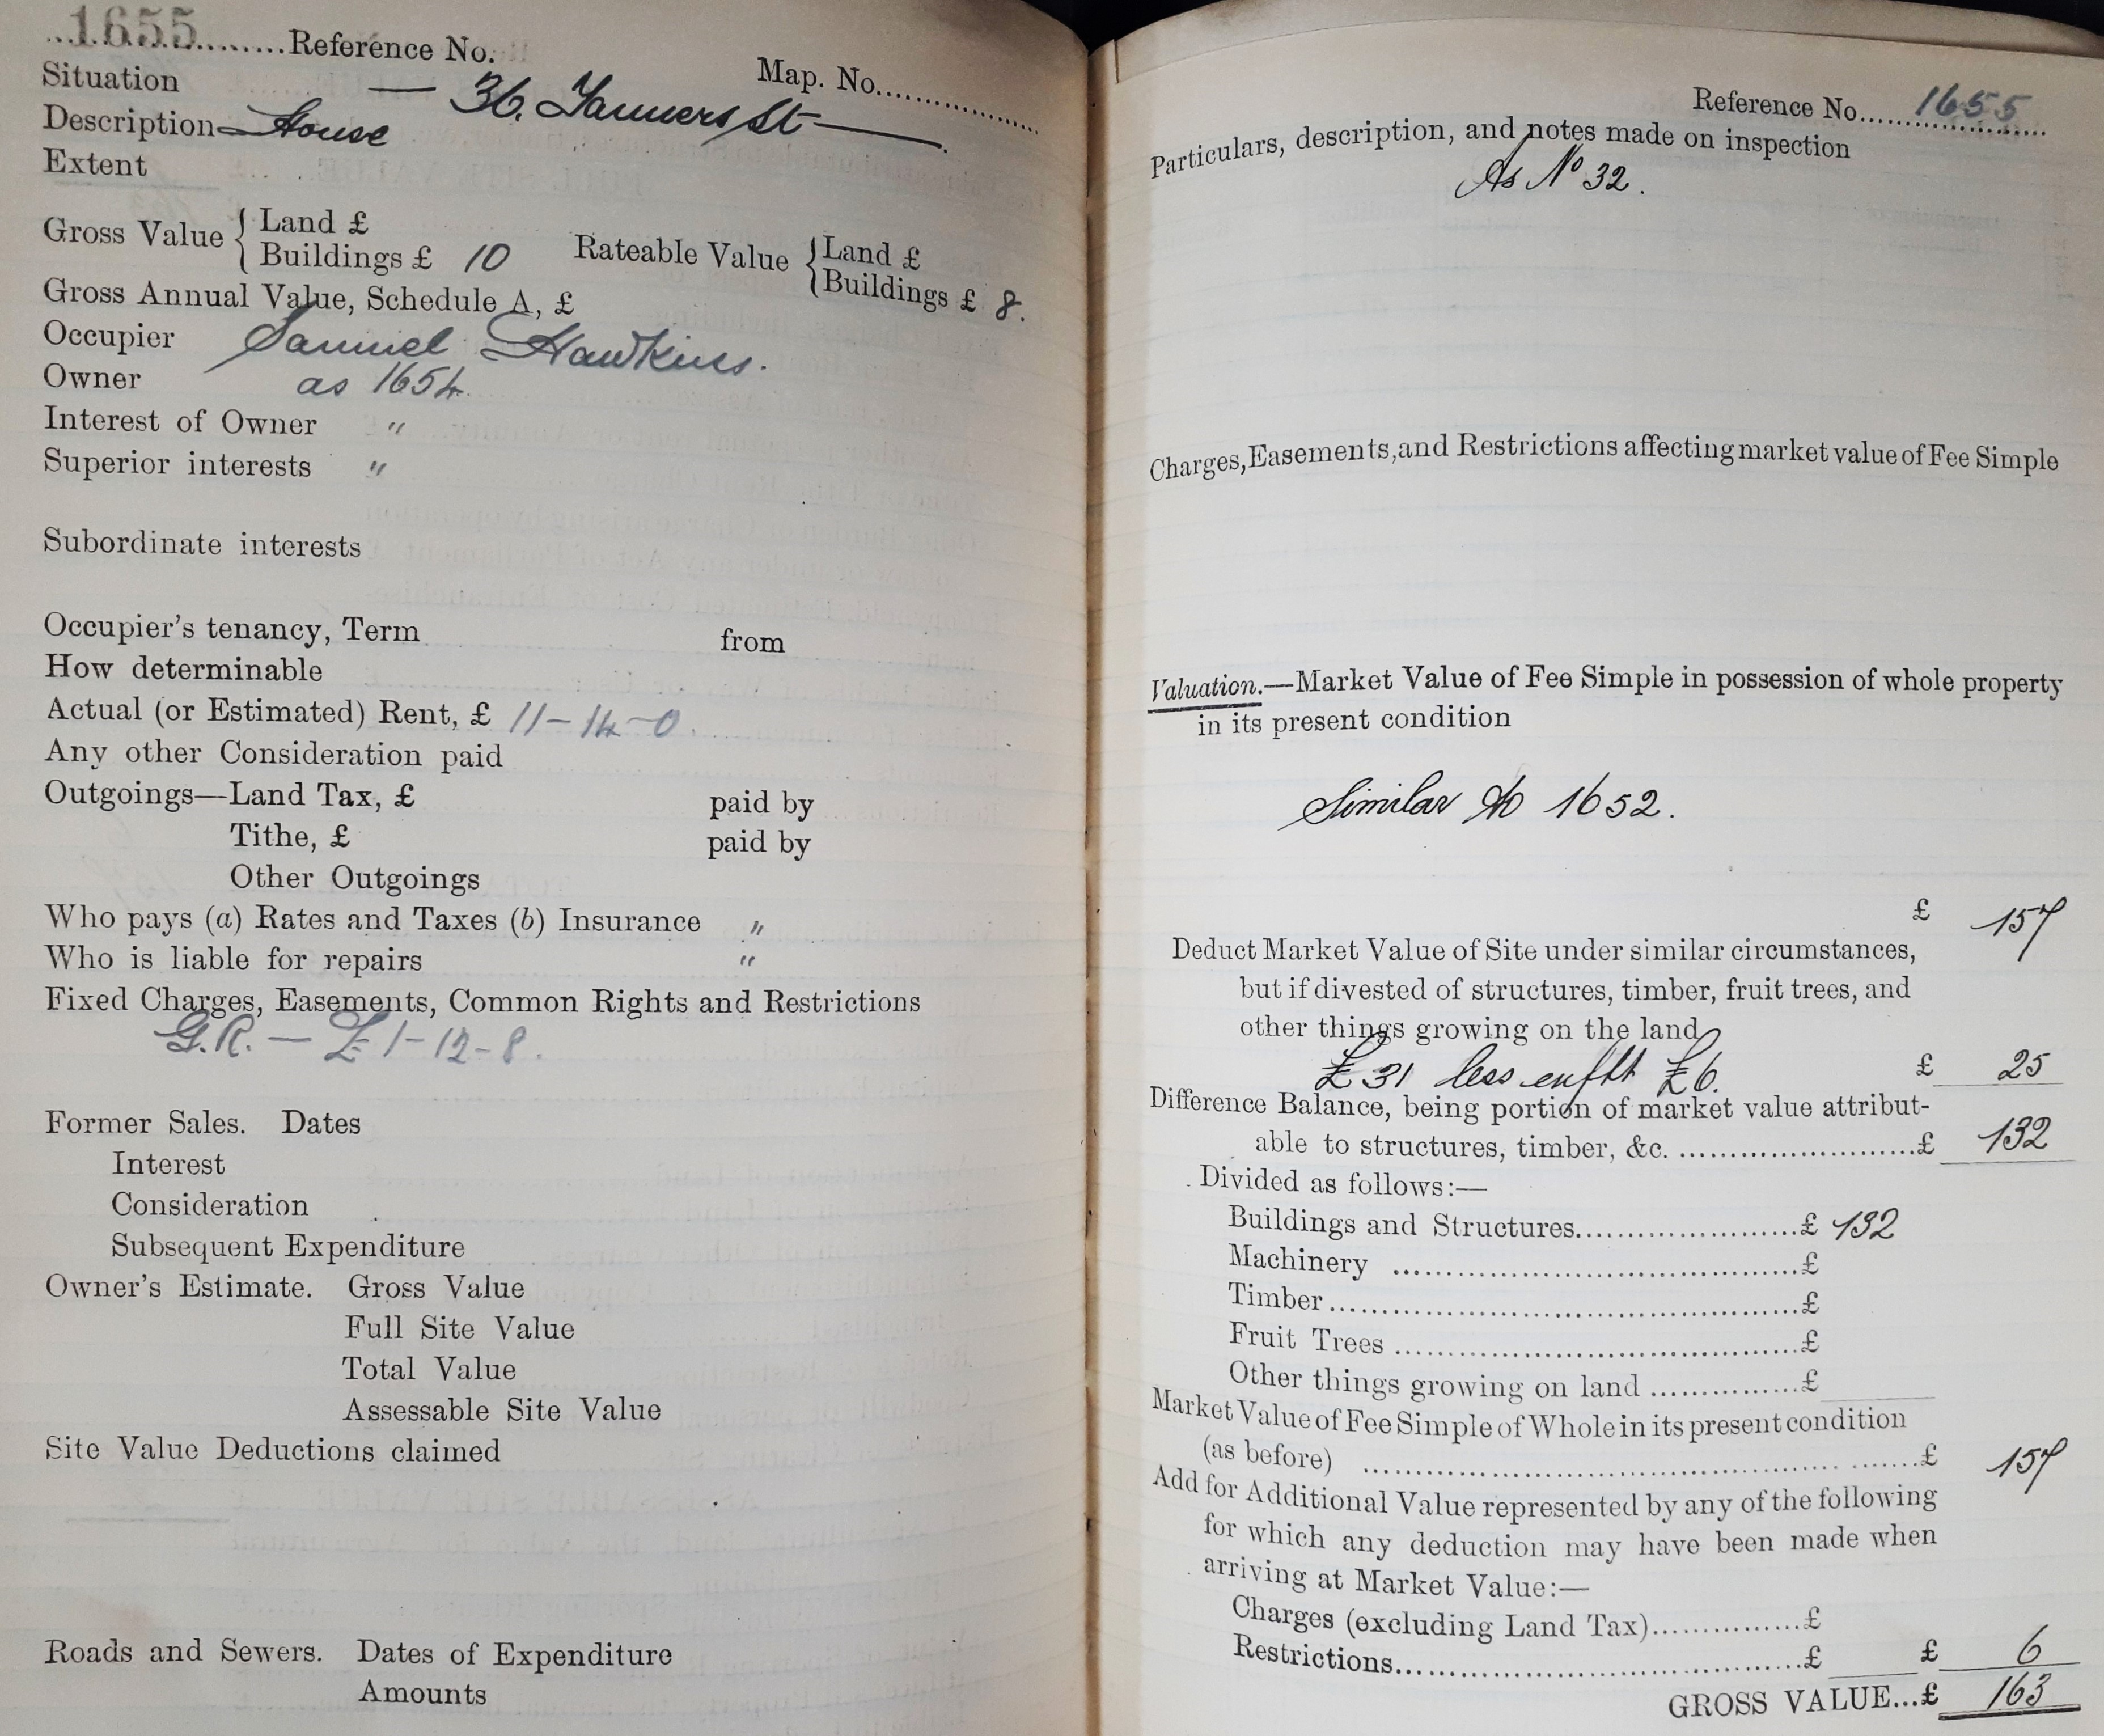 1655 Reference No. Map. No.
Situation — 36. Tanners St —
Description — House
Extent
Gross Value { Land £
Buildings £ 10 Rateable Value { Land £
Buildings £ 8.
Gross Annual Value, Schedule A, £
Occupier Samuel Hawkins.
Owner as 1654
Interest of Owner "
Superior interests "
Subordinate interests
Occupier's tenancy, Term from
How determinable
Actual (or Estimated) Rent, £ 11-14-0.
Any other Consideration paid
Outgoings—Land Tax, £ paid by
Tithe, £ paid by
Other Outgoings
Who pays (a) Rates and Taxes (b) Insurance "
Who is liable for repairs "
Fixed Charges, Easements, Common Rights and Restrictions
G.R. — £1-12-8.
Former Sales. Dates
Interest
Consideration
Subsequent Expenditure
Owner's Estimate. Gross Value
Full Site Value
Total Value
Assessable Site Value
Site Value Deductions claimed
Roads and Sewers. Dates of Expenditure
Amounts
Reference No. 1655
Particulars, description, and notes made on inspection
As No 32.
Charges, Easements, and Restrictions affecting market value of Fee Simple
Valuation.—Market Value of Fee Simple in possession of whole property
in its present condition
Similar to 1652.
£ 157
Deduct Market Value of Site under similar circumstances,
but if divested of structures, timber, fruit trees, and
other things growing on the land
£31 less enfft £6. £ 25
Difference Balance, being portion of market value attribut-
able to structures, timber, &c. £ 132
Divided as follows:—
Buildings and Structures £ 132
Machinery £
Timber £
Fruit Trees £
Other things growing on land £
Market Value of Fee Simple of Whole in its present condition
(as before) £ 157
Add for Additional Value represented by any of the following
for which any deduction may have been made when
arriving at Market Value:—
Charges (excluding Land Tax) £
Restrictions £ £ 6
GROSS VALUE...£ 163